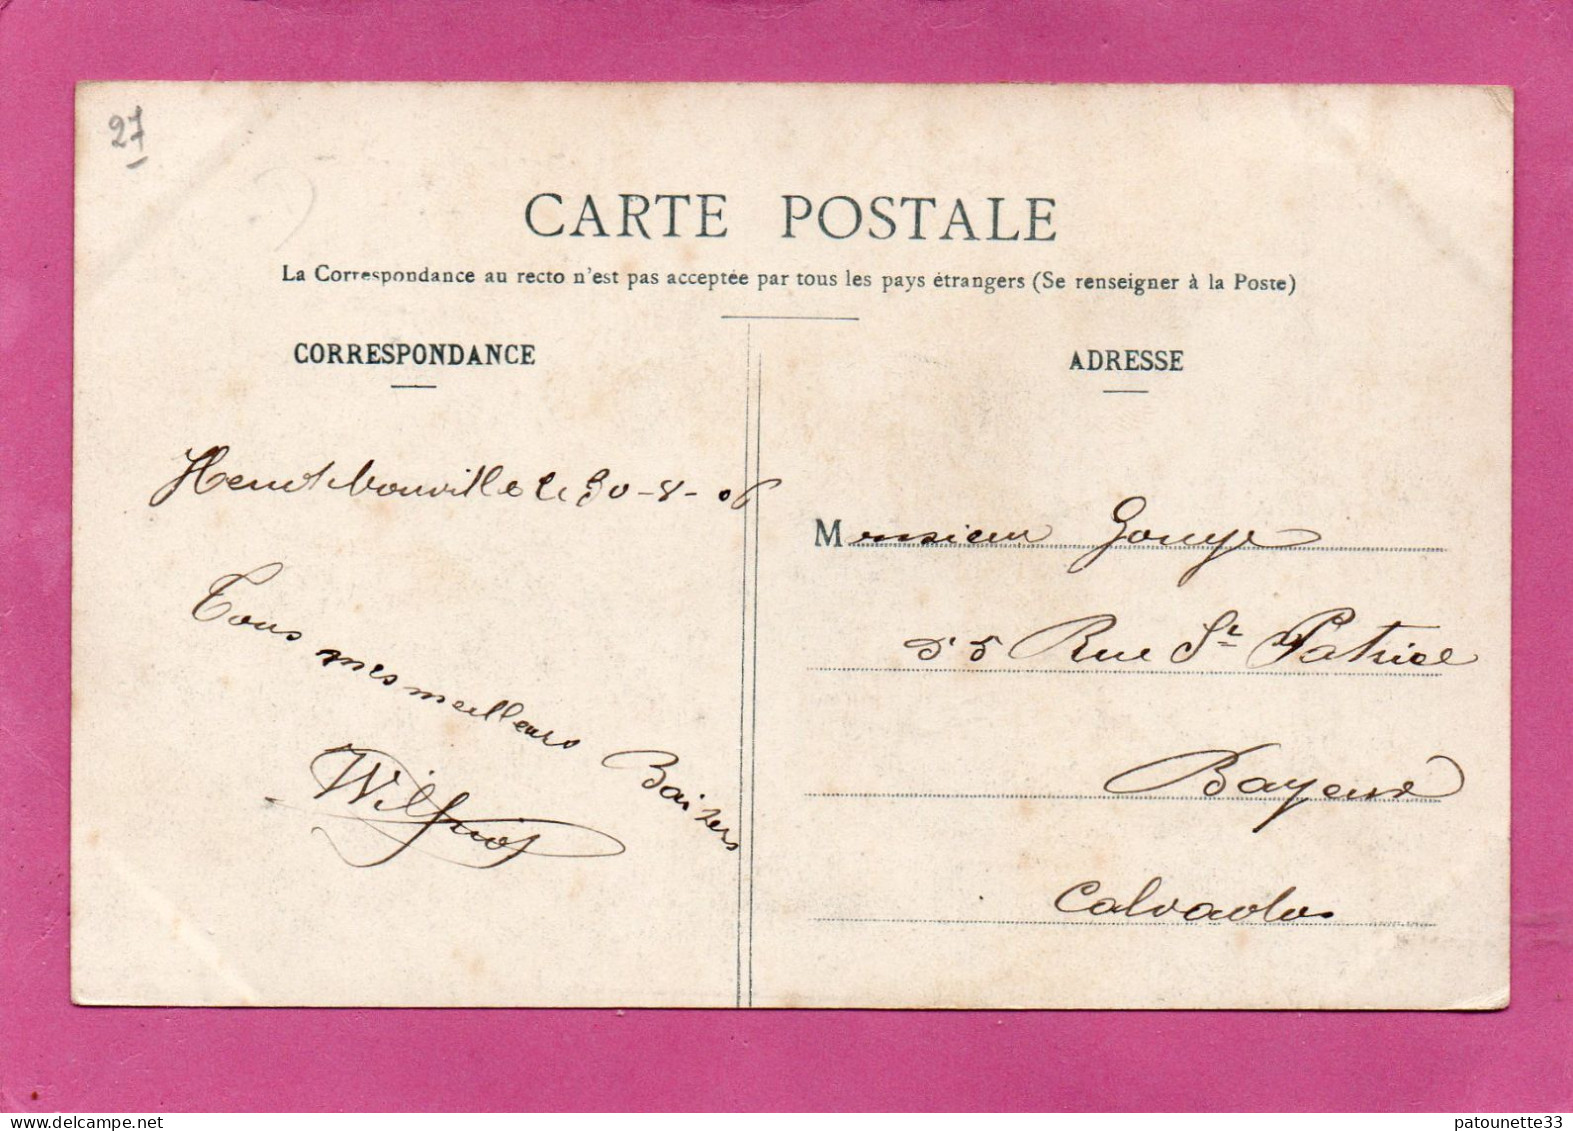 27
CARTE POSTALE
La Correspondance au recto n'est pas acceptée par tous les pays étrangers (Se renseigner à la Poste)
CORRESPONDANCE
le 30-8-06
Tous mes meilleurs Baisers
ADRESSE
Monsieur Gouye
55 Rue St Patrice
Bayeux
Calvados
www.delcampe.net
patounette33